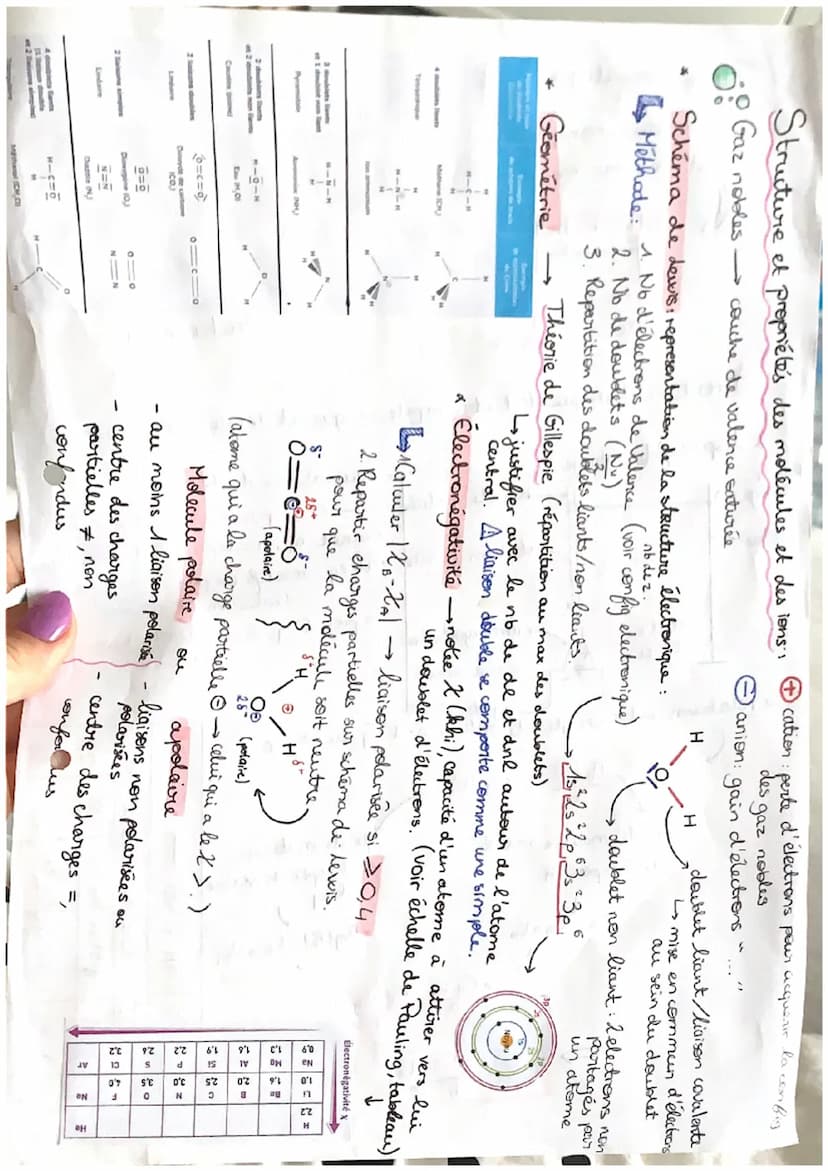 Structure et propriétés des molécules et des ions :
Gaz nobles → couche de valence saturée
⊕ cation : perte d'électrons pour acquérir la config
des gaz nobles
⊖ anion : gain d'électrons " ... "
* Schéma de Lewis : représentation de la structure électronique :
↳ Méthode : 1. Nb d'électrons de valence (voir config electronique)
2. Nb de doublets (Nv/2)
nb de z :
3. Repartition des doublets liants/non liants.
H
O
H
doublet liant/liaison covalente
↳ mise en commun d'électrons
au sein du doublet
→ doublet non liant : 2 electrons non
partagés par
un atome
1s² 2s² 2p⁶ 3s² 3p⁶
* Géométrie → Théorie de Gillespie (répartition au max des doublets)
↳ justifier avec le nb de dl et dnl autour de l'atome
central. ⚠ liaison double se comporte comme une simple.
* Électronégativité → notée χ (khi), capacité d'un atome à attirer vers lui
un doublet d'électrons. (voir échelle de Pauling, tableau)
↳ 1 Calculer |χB - χA| → liaison polarisée si ⩾ 0,4
2 Repartir charges partielles sur schéma de Lewis.
pour que la molécule soit neutre
δ- 2δ+ δ-
O=C=O
(apolaire)
δ+
H
⊕
H δ+
O
2δ-
(polaire)
(atome qui a la charge partielle ⊖ → celui qui a le χ >.)
Molécule polaire ou apolaire
- au moins 1 liaison polarisée
- centre des charges
partielles ≠, non
confondus
- liaisons non polarisées ou
polarisées
- centre des charges =,
confondus
4 doublets liants
Tétraédrique
Méthane (CH₄)
Ion ammonium
3 doublets liants
et 1 doublet non liant
Pyramidale
Ammoniac (NH₃)
2 doublets liants
et 2 doublets non liants
Coudée (plane)
H–O–H
Eau (H₂O)
2 liaisons doubles
Linéaire
O=C=O
Dioxyde de carbone
(CO₂)
O=C=O
2 liaisons simples
Linéaire
O=O
Dioxygène (O₂)
N≡N
Diazote (N₂)
O=O
N≡N
Électronégativité χ
H 2,2
He
Li 1,0
Be 1,6
B 2,0
C 2,5
N 3,0
O 3,5
F 4,0
Ne
Na 0,9
Mg 1,3
Al 1,6
Si 1,9
P 2,2
S 2,6
Cl 3,2
Ar